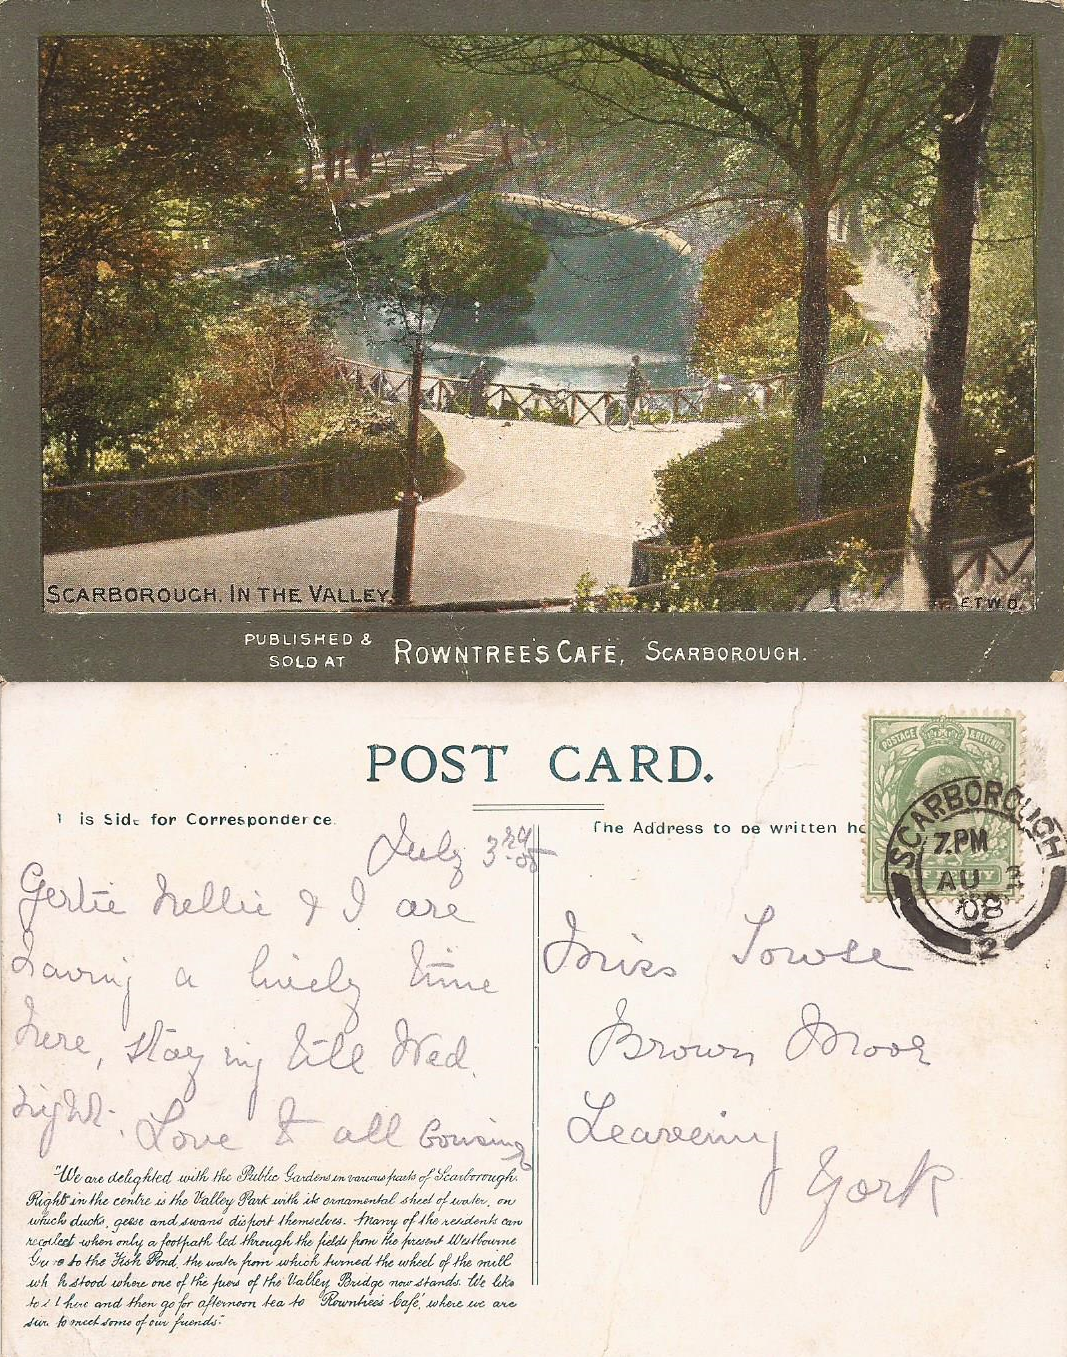 SCARBOROUGH. IN THE VALLEY.
E.T.W.D.
PUBLISHED &
SOLD AT ROWNTREE'S CAFÉ, SCARBOROUGH.
POST CARD.
is Side for Correspondence.
The Address to be written he
POSTAGE & REVENUE
SCARBOROUGH
7.PM
AU 3
08
2
July 3rd 05
Gertie Nellie & I are
having a lively time
here, staying till Wed.
night. Love to all Cousins
Miss Towse
Brown Moor
Leavening
York
"We are delighted with the Public Gardens in various parts of Scarborough.
Right in the centre is the Valley Park with its ornamental sheet of water, on
which ducks, geese and swans disport themselves. Many of the residents can
recollect when only a footpath led through the fields from the present Westbourne
to the Fish Pond, the water from which turned the wheel of the mill
wh h stood where one of the piers of the Valley Bridge now stands. We like
to sit here and then go for afternoon tea to 'Rowntree's Café,' where we are
sure to meet some of our friends."